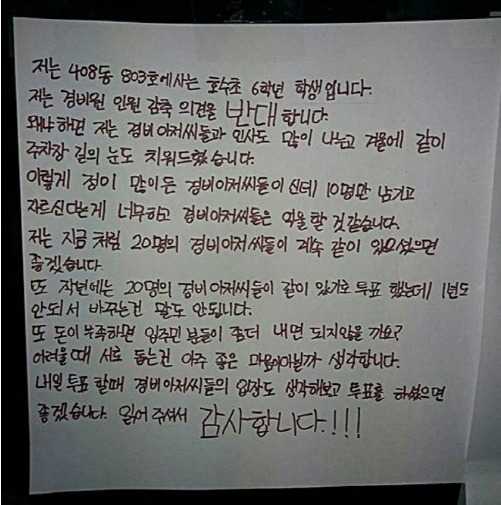 저는 408동 803호에사는 호수초 6학년 학생입니다.
저는 경비원 인원 감축 의견을 반대합니다.
왜냐하면 저는 경비아저씨들과 인사도 많이 나누고 겨울에 같이
주차장 길의 눈도 치워드렸습니다.
이렇게 정이 많이든 경비아저씨들이신데 10명만 남기고
자르신다는게 너무하고 경비아저씨들은 억울할 것같습니다.
저는 지금 처럼 20명의 경비아저씨들이 계속 같이 있으셨으면
좋겠습니다.
또 작년에는 20명의 경비아저씨들이 같이 있기로 투표 했는데 1년도
안되서 바꾸는건 말도 안됩니다.
또 돈이 부족하면 입주민 분들이 좀더 내면 되지않을 까요?
어려울때 서로 돕는건 아주 좋은 마음이아닐까 생각합니다.
내일 투표 할때 경비아저씨들의 입장도 생각해보고 투표를 하셨으면
좋겠습니다. 읽어 주셔서 감사합니다.!!!